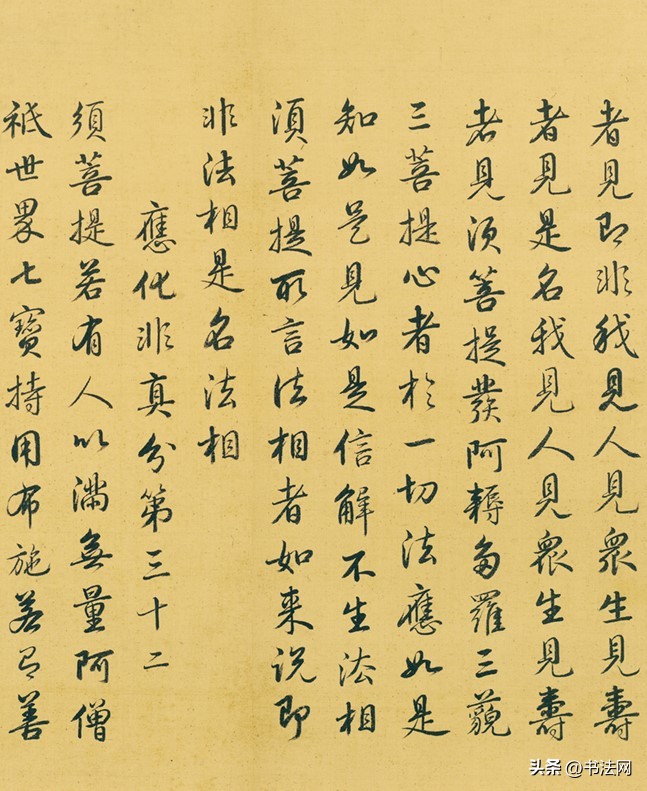 者見即非我見人見眾生見壽
者見是名我見人見眾生見壽
者見須菩提發阿耨多羅三藐
三菩提心者於一切法應如是
知如是見如是信解不生法相
須菩提所言法相者如来說即
非法相是名法相
應化非真分第三十二
須菩提若有人以滿無量阿僧
祇世界七寶持用布施若有善
头条 @书法网